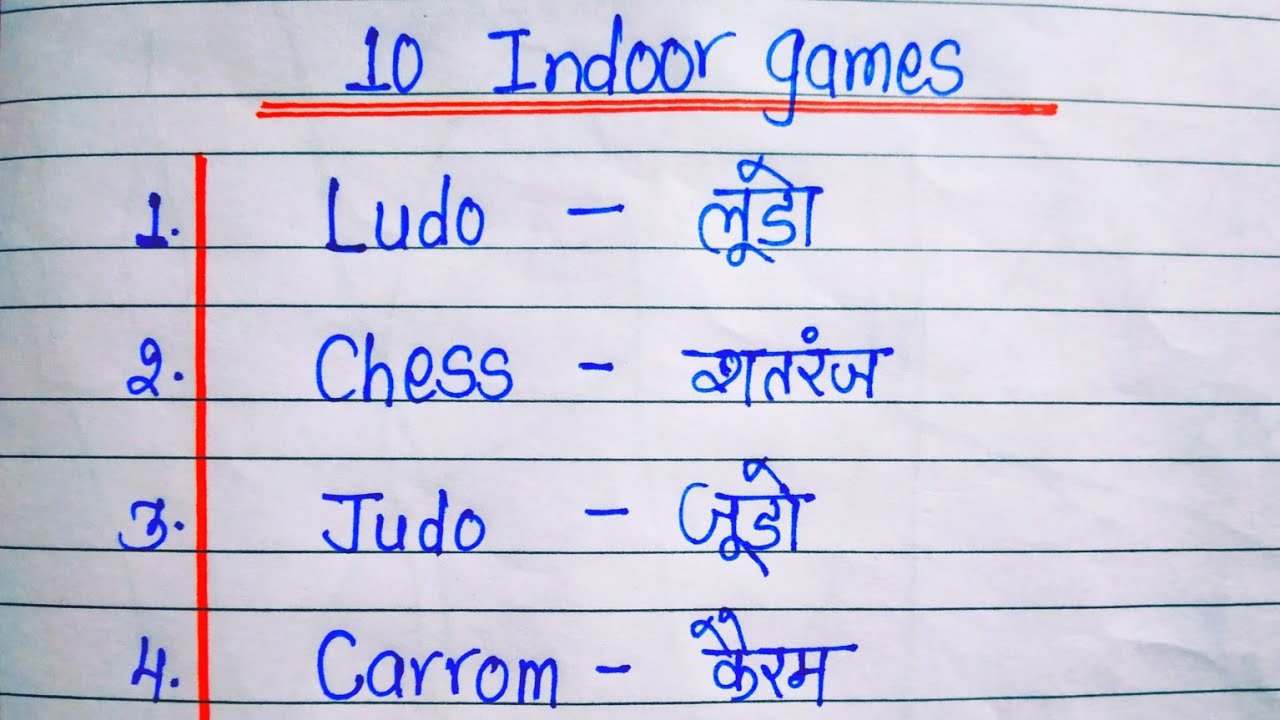 10 Indoor games
1. Ludo - लूडो
2. Chess - शतरंज
3. Judo - जूडो
4. Carrom - कैरम